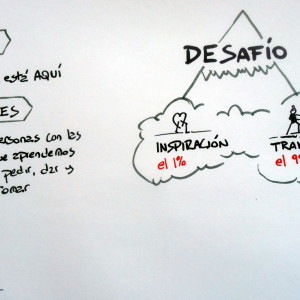 está AQUÍ
ES
personas con las
ue aprendemos
pedir, dar y
tomar
DESAFÍO
INSPIRACIÓN
el 1%
TRAN
el 9